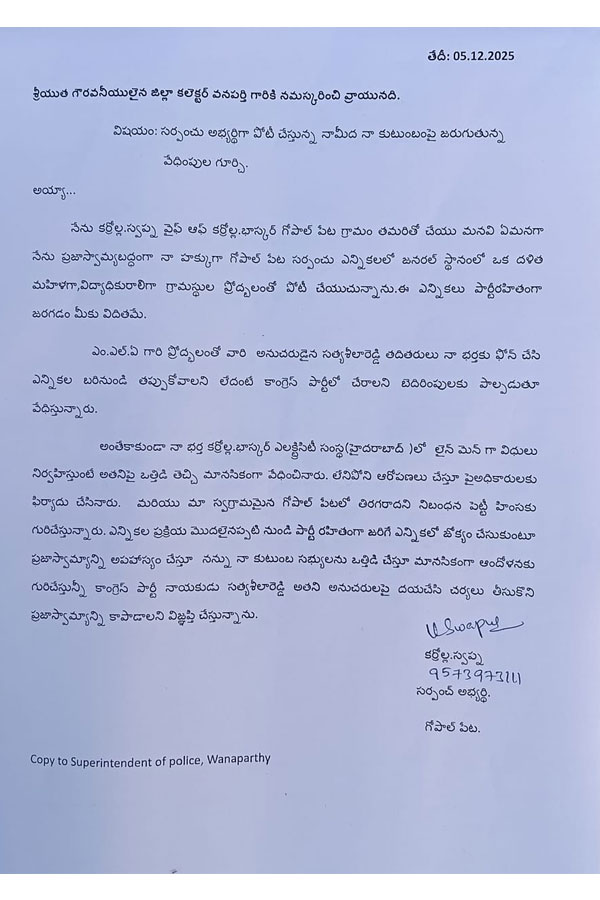 తేదీ: 05.12.2025
శ్రీయుత గౌరవనీయులైన జిల్లా కలెక్టర్ వనపర్తి గారికి నమస్కరించి వ్రాయునది.
విషయం: సర్పంచు అభ్యర్థిగా పోటీ చేస్తున్న నామీద నా కుటుంబంపై జరుగుతున్న
వేధింపుల గూర్చి.
అయ్యా...
నేను కర్రోల్ల.స్వప్న వైఫ్ ఆఫ్ కర్రోల్ల.బాస్కర్ గోపాల్ పేట గ్రామం తమరితో చేయు మనవి ఏమనగా
నేను ప్రజాస్వామ్యబద్ధంగా నా హక్కుగా గోపాల్ పేట సర్పంచు ఎన్నికలలో జనరల్ స్థానంలో ఒక దళిత
మహిళగా,విద్యాధికురాలిగా గ్రామస్థుల ప్రోద్బలంతో పోటీ చేయుచున్నాను.ఈ ఎన్నికలు పార్టీరహితంగా
జరగడం మీకు విదితమే.
ఎం.ఎల్.ఏ గారి ప్రోద్బలంతో వారి అనుచరుడైన సత్యశీలారెడ్డి తదితరులు నా భర్తకు ఫోన్ చేసి
ఎన్నికల బరినుండి తప్పుకోవాలని లేదంటే కాంగ్రెస్ పార్టీలో చేరాలని బెదిరింపులకు పాల్పడుతూ
వేధిస్తున్నారు.
అంతేకాకుండా నా భర్త కర్రోల్ల.బాస్కర్ ఎలక్ట్రిసిటీ సంస్థ(హైదరాబాద్ )లో లైన్ మెన్ గా విధులు
నిర్వహిస్తుంటే అతనిపై ఒత్తిడి తెచ్చి మానసికంగా వేధించినారు. లేనిపోని ఆరోపణలు చేస్తూ పైఅధికారులకు
ఫిర్యాదు చేసినారు. మరియు మా స్వగ్రామమైన గోపాల్ పేటలో తిరగరాదని నిబంధన పెట్టీ హింసకు
గురిచేస్తున్నారు. ఎన్నికల ప్రక్రియ మొదలైనప్పటి నుండి పార్టీ రహితంగా జరిగే ఎన్నికలో జోక్యం చేసుకుంటూ
ప్రజాస్వామ్యాన్ని అపహాస్యం చేస్తూ నన్ను నా కుటుంబ సభ్యులను ఒత్తిడి చేస్తూ మానసికంగా ఆందోళనకు
గురిచేస్తున్నీ కాంగ్రెస్ పార్టీ నాయకుడు సత్యశీలారెడ్డి అతని అనుచరులపై దయచేసి చర్యలు తీసుకొని
ప్రజాస్వామ్యాన్ని కాపాడాలని విజ్ఞప్తి చేస్తున్నాను.
K Swapna
కర్రోల్ల.స్వప్న
9573973111
సర్పంచ్ అభ్యర్థి.
గోపాల్ పేట.
Copy to Superintendent of police, Wanaparthy